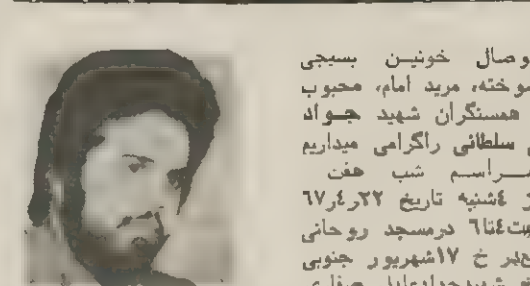 وصال خونین بسیجی
سوخته، مرید امام، محبوب
همسنگران شهید جواد
سلطانی راگرامی میداریم
مراسم شب هفت
٤شنبه تاریخ ٢٢ر٤ر٦٧
٤تا٦ درمسجد روحانی
خ ١٧شهریور جنوبی